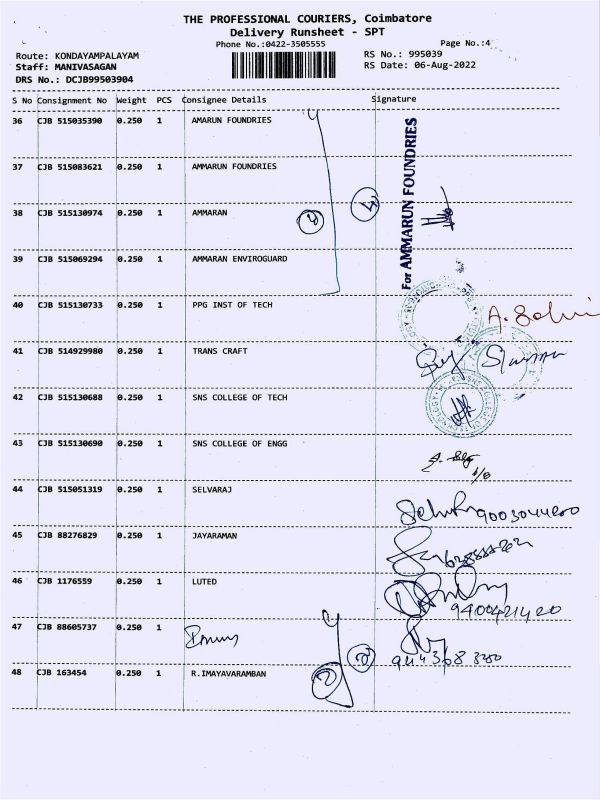 THE PROFESSIONAL COURIERS, Coimbatore
Delivery Runsheet - SPT
Phone No.:0422-3505555
Page No.:4
Route: KONDAYAMPALAYAM
RS No.: 995039
Staff: MANIVASAGAN
RS Date: 06-Aug-2022
DRS No.: DCJB99503904
S No Consignment No Weight PCS Consignee Details Signature
36 CJB 515035390 0.250 1 AMARUN FOUNDRIES
For AMMARUN FOUNDRIES
37 CJB 515083621 0.250 1 AMMARUN FOUNDRIES
38 CJB 515130974 0.250 1 AMMARAN
39 CJB 515069294 0.250 1 AMMARAN ENVIROGUARD
40 CJB 515130733 0.250 1 PPG INST OF TECH
41 CJB 514929980 0.250 1 TRANS CRAFT
42 CJB 515130688 0.250 1 SNS COLLEGE OF TECH
43 CJB 515130690 0.250 1 SNS COLLEGE OF ENGG
44 CJB 515051319 0.250 1 SELVARAJ
9003044200
45 CJB 88276829 0.250 1 JAYARAMAN
46 CJB 1176559 0.250 1 LUTED
9400421420
47 CJB 88605737 0.250 1
48 CJB 163454 0.250 1 R.IMAYAVARAMBAN